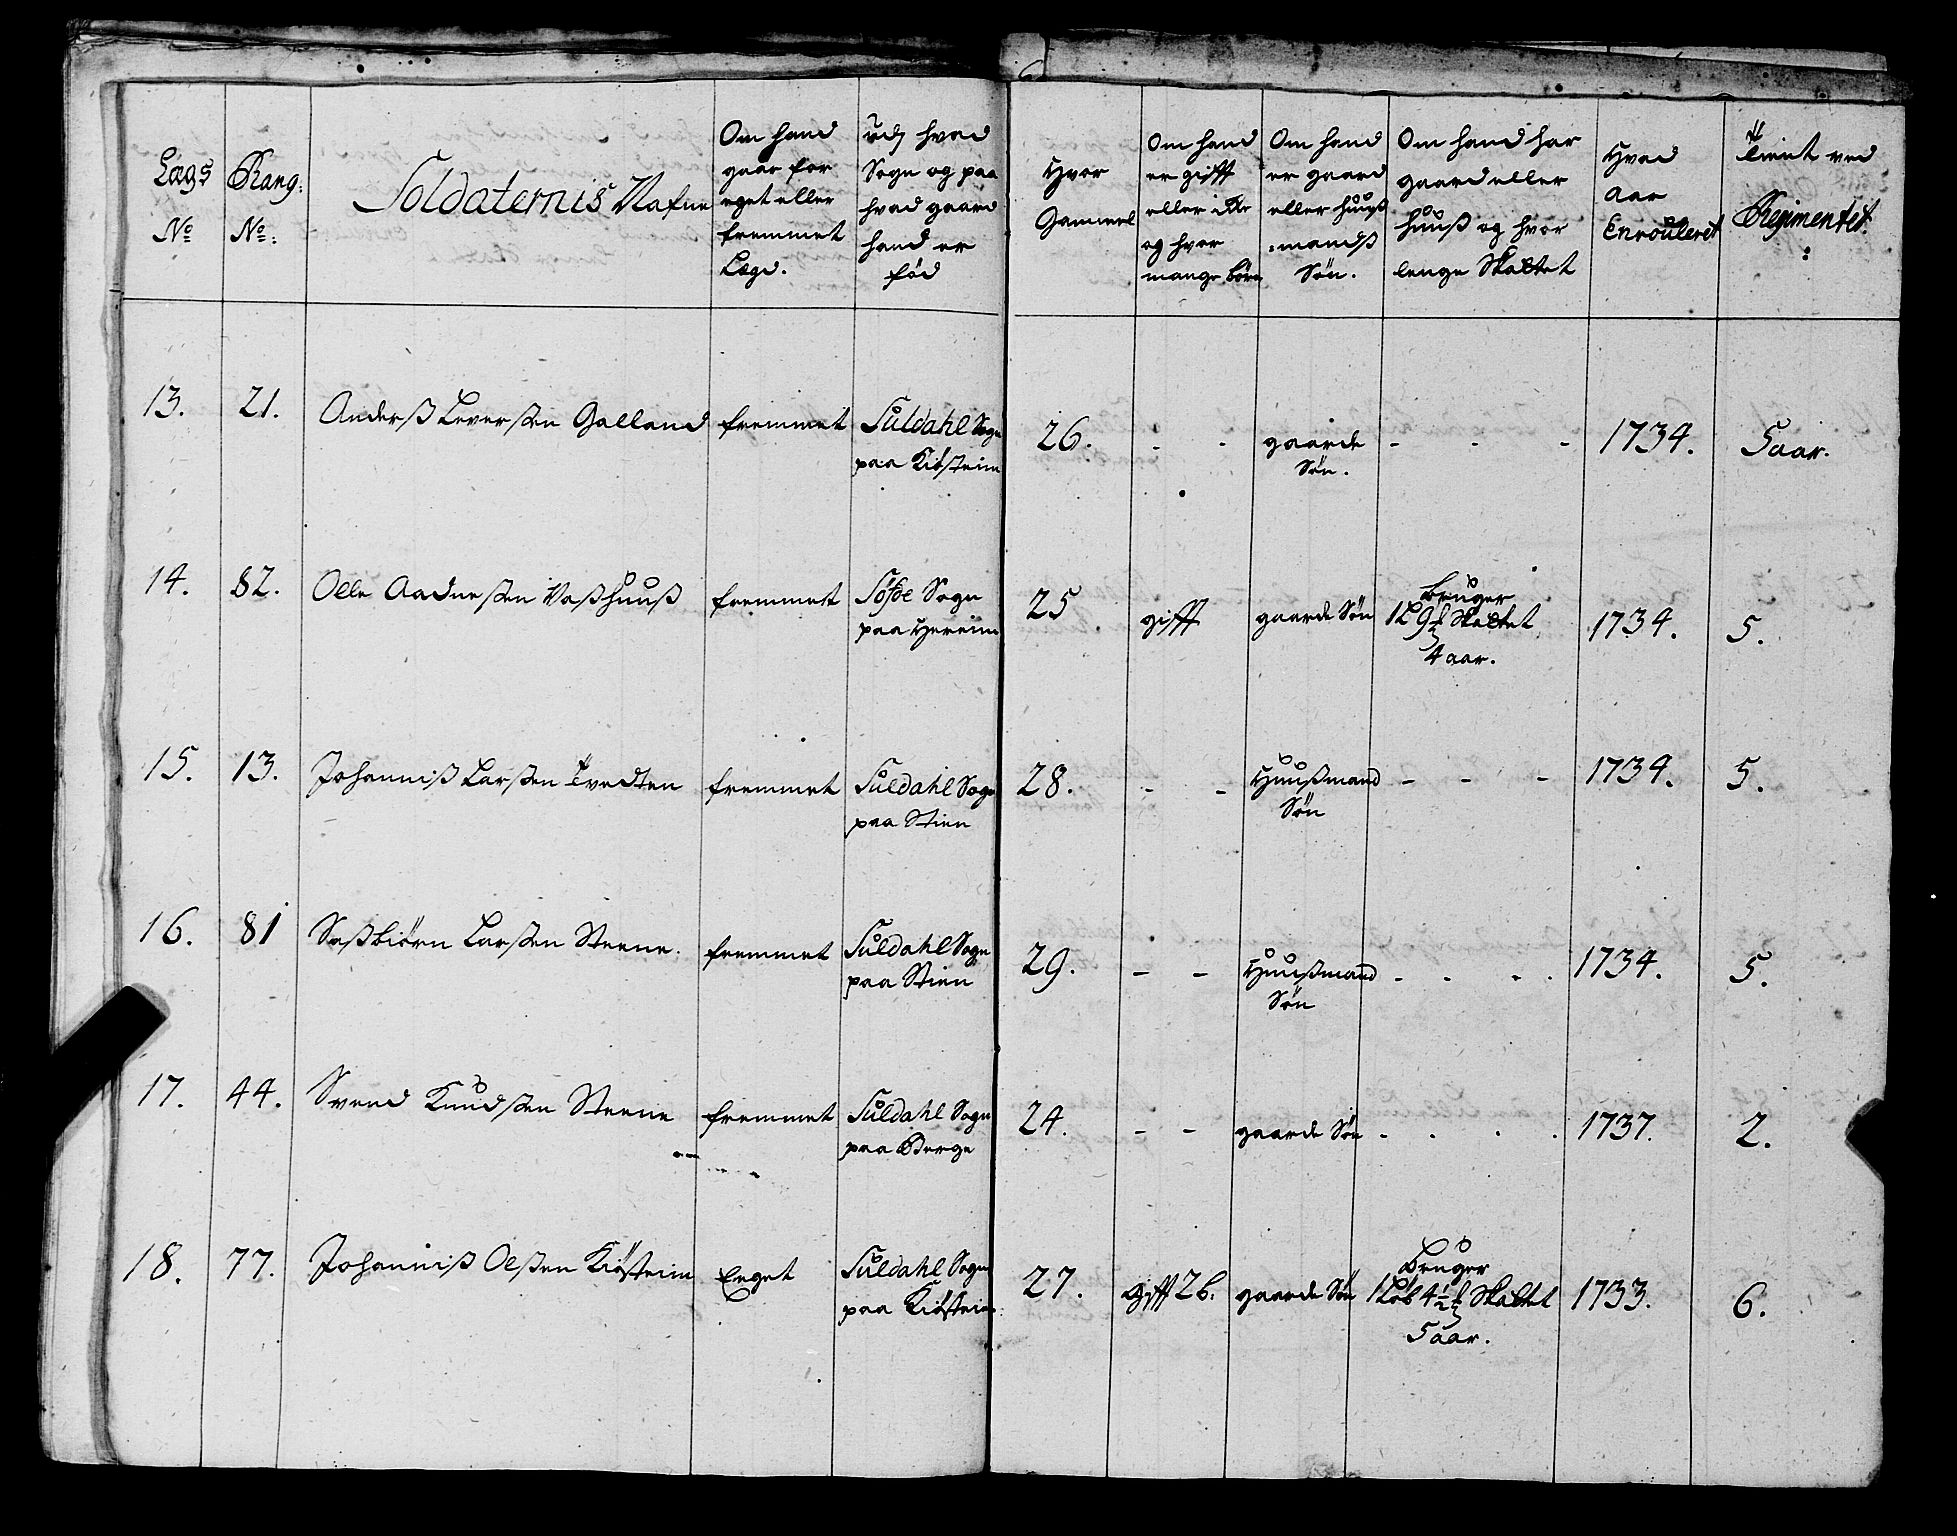 Lægs
No
Rang:
No:
Soldaternis Nafne
Om hand
gaar for
eget eller
fremmet
Lægd.
udj hvad
Sogn og paa
hvad gaard
hand er
fød
Hvor
Gammel
Om hand
er gifft
eller
og hvor
mange børn
Om hand
er gaard
eller huuß
mandß
Søn.
Om hand har
gaard eller
huuß og hvor
lenge Skattet
Hvad
aar
Enroulleret
Tient ved
Regimentet
13. 21. Anderß Leverßen Galland fremmet Suldahl Sogn
paa Kiøsteim
26. - - gaarde
Søn. - - - 1734. 5 aar.
14. 82. Olle Aadneßen Vaßhuuß fremmet Søfde Sogn
paa Hereim
25 gifft gaarde Søn Bruger
Skattet
4 aar. 1734. 5.
15. 13. Johanniß Larßen Tvedten fremmet Suldahl Sogn
paa Stien
28. - - Huußmand
Søn - - - 1734. 5.
16. 81 Saßbiörn Larßen Steene. fremmet Suldahl Sogn
paa Stien
29. - - Huußmand
Søn - - - - 1734. 5.
17. 44. Svend Knudßen Steene fremmet Suldahl Sogn
paa Berge
24. - - gaarde Søn - - - - 1737. 2.
18. 77. Johanniß Olßen Kiøsteim Eeget Suldahl Sogn
paa Kiøsteim
27. gifft 2 b. gaarde Søn Bruger
1 Løb 4 1/2 Skattet
5 aar. 1733. 6.